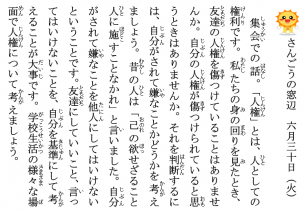 さんごうの窓辺　六月三十日（火）
集会での話。「人権」とは、人としての
権利です。私たちの身の回りを見たとき、
友達の人権を傷つけていることはありませ
んか。自分の人権が傷つけられていると思
うときはありませんか。それを判断するに
は、自分がされて嫌なことかどうかを考え
ましょう。昔の人は「己の欲せざること
人に施すことなかれ」と言いました。自分
がされて嫌なことを他人にしてはいけない
ということです。友達にしていいこと、言っ
てはいけないことを、自分を基準にして考
えることが大事です。学校生活の様々な場
面で人権について考えましょう。